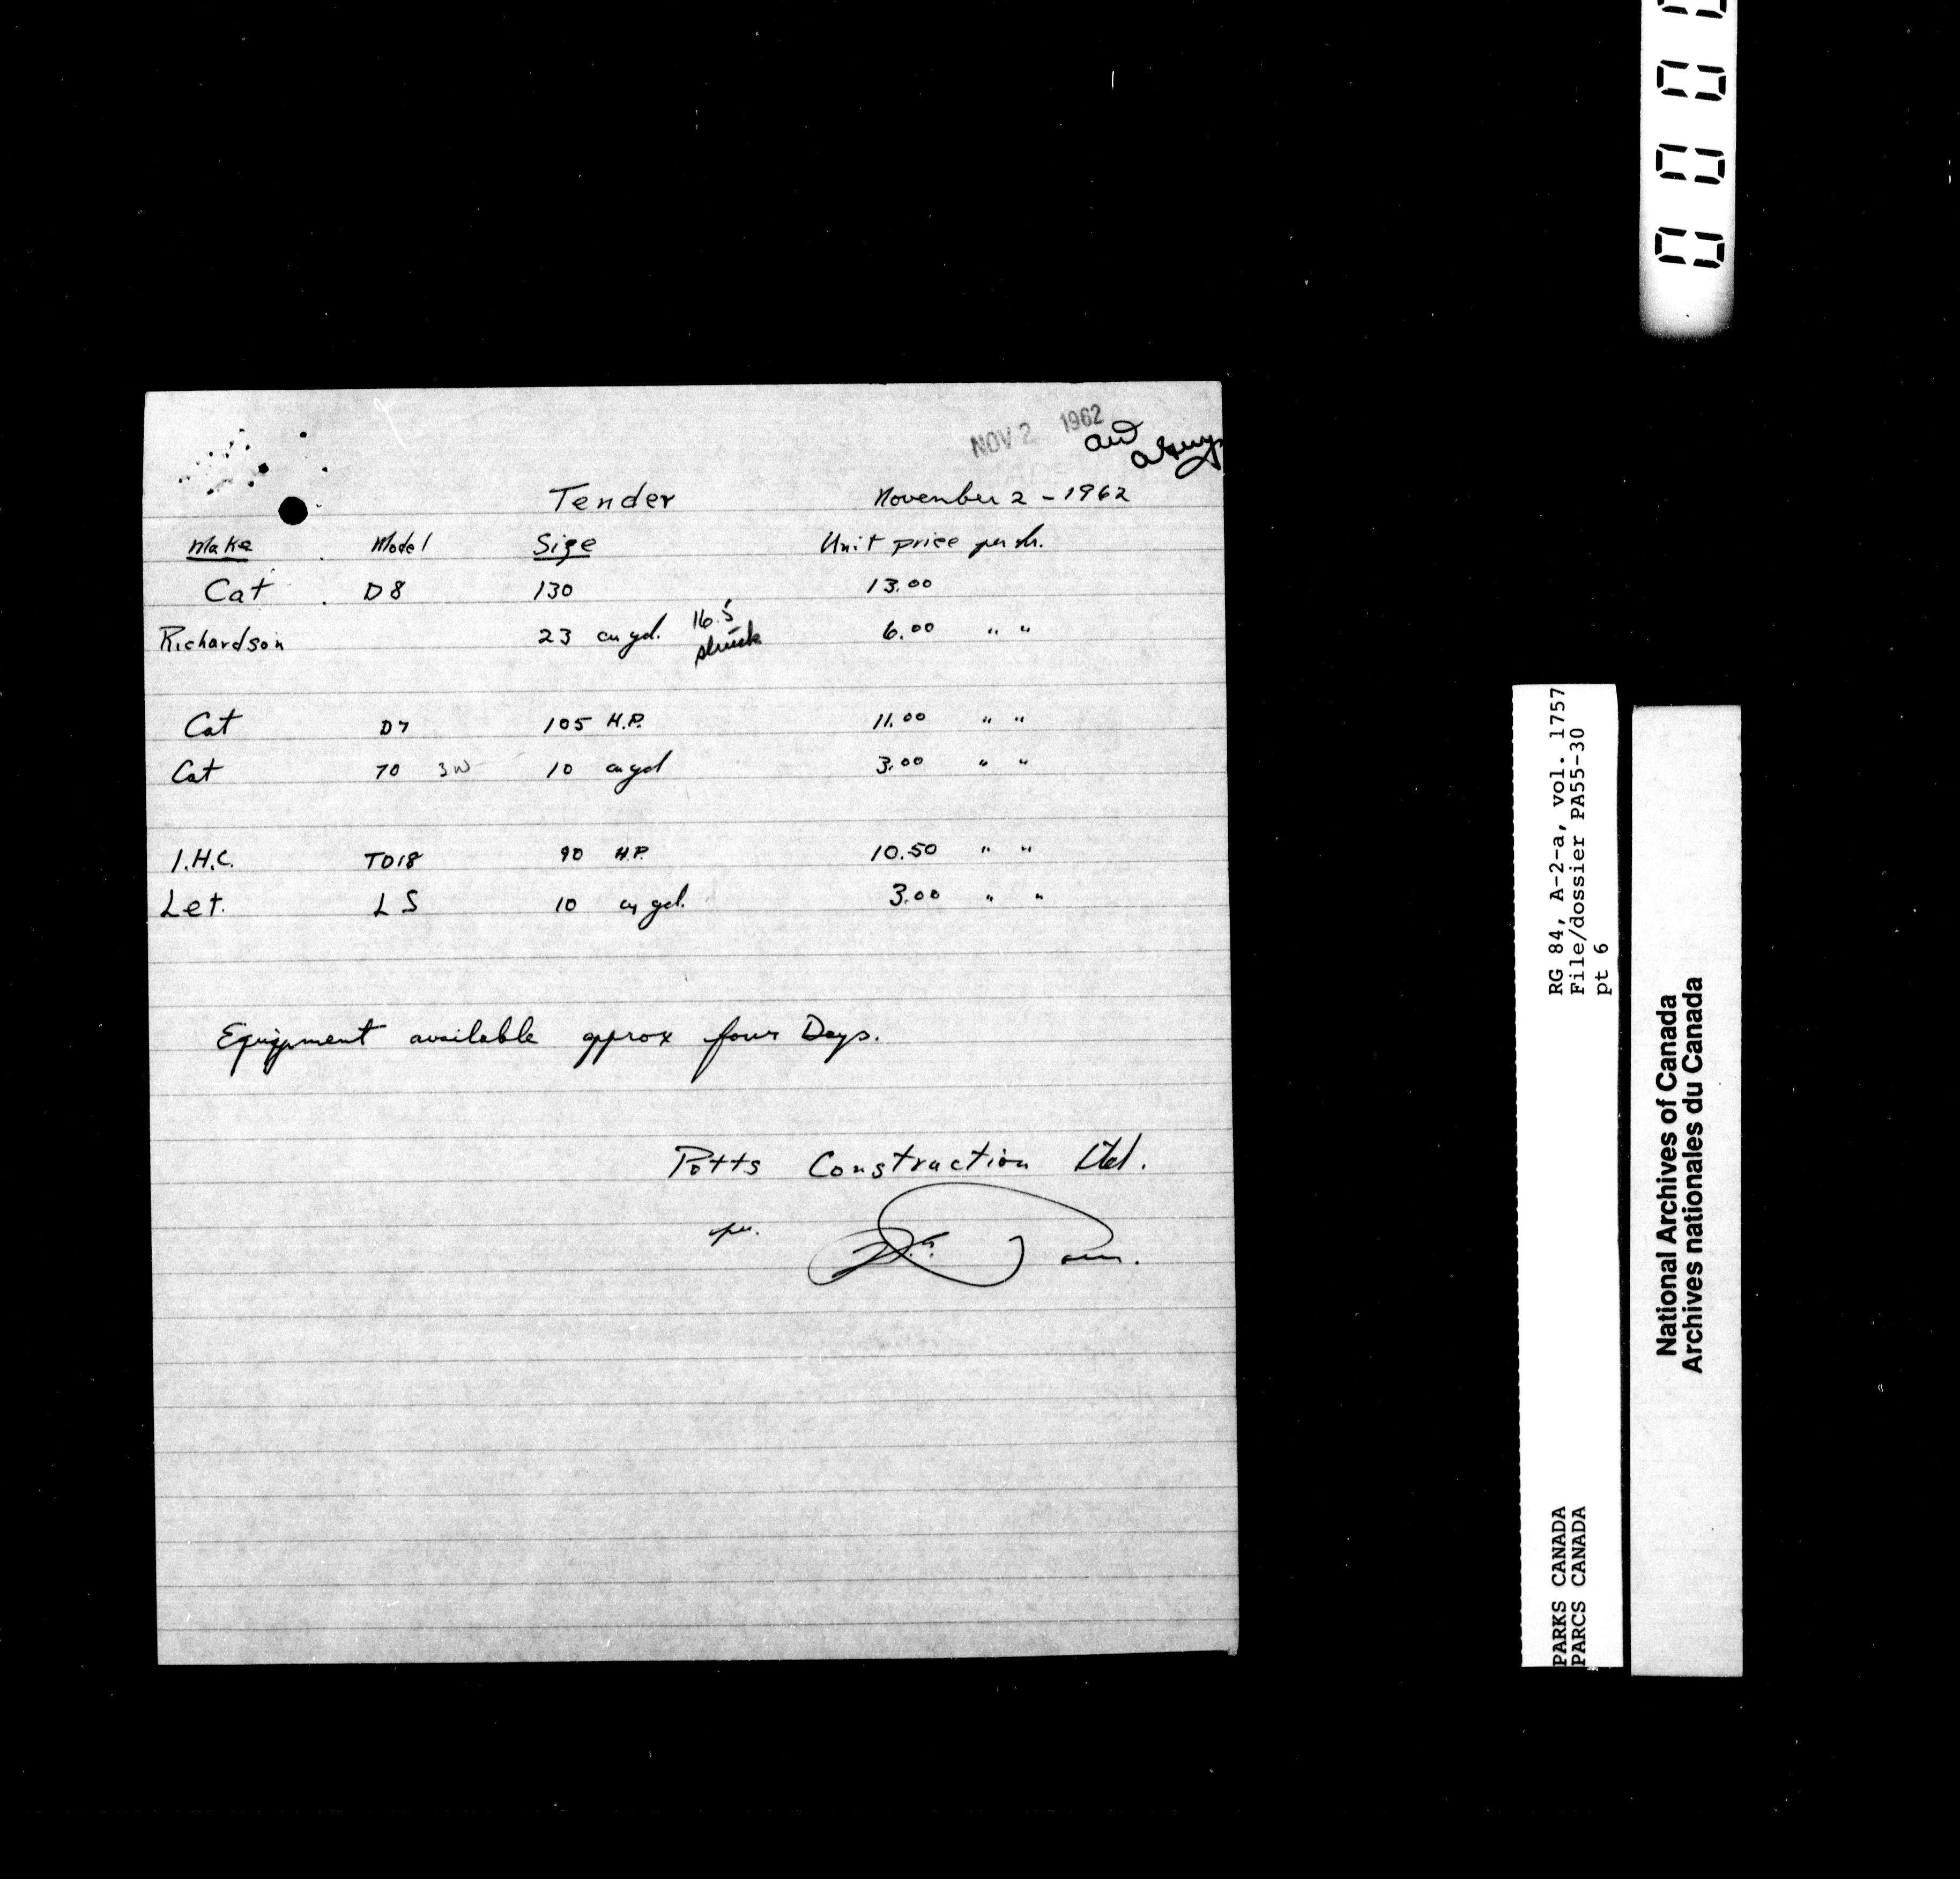 NOV 2 1962
Tender November 2 - 1962
Make Model Size Unit price per hr.
Cat D8 130 13.00
Richardson 23 cu yd. 16.5 struck 6.00 " "
Cat D7 105 H.P. 11.00 " "
Cat 70 3W 10 cu yd 3.00 " "
I.H.C. TD18 90 H.P. 10.50 " "
Let. LS 10 cu yd. 3.00 " "
Equipment available approx four Days.
Potts Construction Ltd.
per.
RG 84, A-2-a, vol. 1757
File/dossier PA55-30
pt 6
PARKS CANADA
PARCS CANADA
National Archives of Canada
Archives nationales du Canada